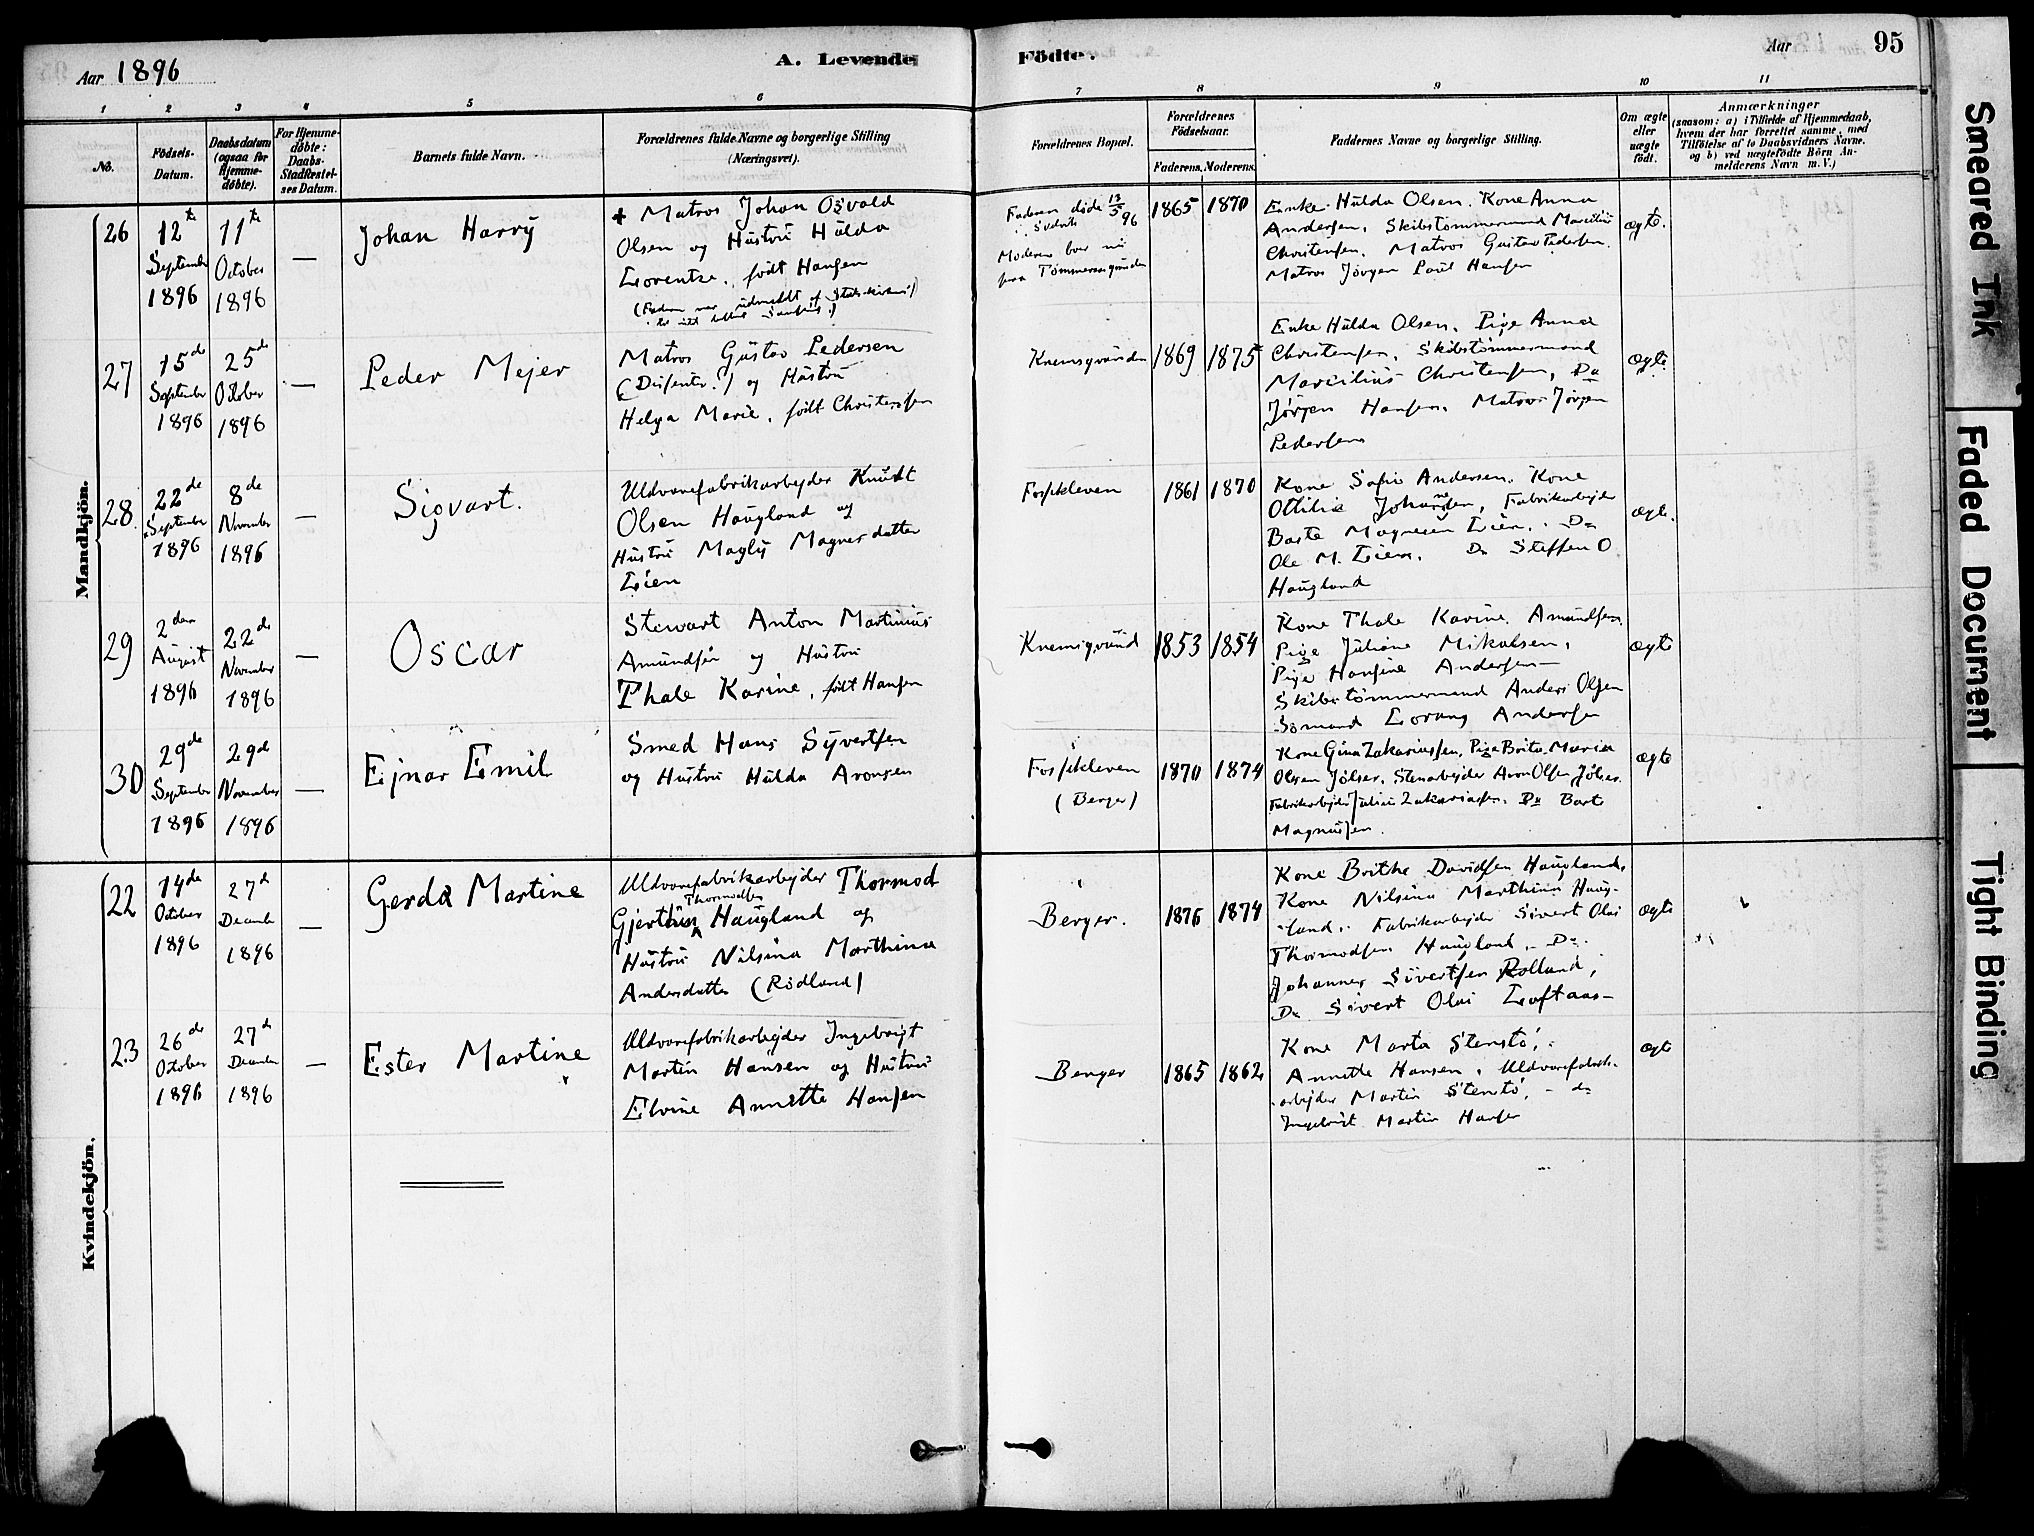 Aar 1896
A. Levende Födte.
Aar
95
1
2
3
4
5
6
7
8
9
10
11
No.
Födsels-
Datum.
Daabsdatum
(ogsaa for
Hjemme-
døbte).
For Hjemme-
døbte:
Daabs-
Stadfæstel-
ses Datum.
Barnets fulde Navn.
Forældrenes fulde Navne og borgerlige Stilling
(Næringsvei).
Forældrenes Bopæl.
Forældrenes
Födselsaar.
Faderens.
Moderens.
Faddernes Navne og borgerlige Stilling.
Om ægte
eller
uægte
født.
Anmærkninger
(saasom: a) i Tilfælde af Hjemmedaab,
hvem der har forrettet samme, med
Tilföielse af to Daabsvidners Navne,
og b) ved uægtefödte Börn An-
melderens Navn m. V.)
Mandkjön.
26
12te
September
1896
11te
October
1896
—
Johan Harry
+ Matros Johan Osvald
Olsen og Hustru Hulda
Lorentze, født Hansen
(Faderen var udmeldt af Statskirken
Faderen døde 13/5 96
Moderen bor nu
paa Tømmeraasgrunden
1865
1870
Enke Hulda Olsen. Kone Anna
Andersen, Skibstømmermand Marcilius
Christensen, Matros Gustav Pedersen.
Matros Jørgen Paul Hansen
ægte.
27
15de
September
1896
25de
October
1896
—
Peder Mejer
Matros Gustav Pedersen
(Dissenter!) og Hustru
Helga Marie, født Christensen
Knemsgrunden
1869
1875
Enke Hulda Olsen, Pige Anna
Christensen, Skibstømmermand
Marcilius Christensen, Do
Jörgen Hansen. Matros Jørgen
Pedersen
ægte.
28.
22de
September
1896
8de
November
1896
—
Sigvart.
Uldvarefabrikarbejder Knudt
Olsen Haugland og
Hustru Magly Magnesdatter
Lien
Fossekleven
1861
1870
Kone Sofie Andersen. Kone
Ottilia Johansen, Fabrikarbejder
Baste Magnesen Lien, Do
Ole M. Lien, Do Steffen O.
Haugland
ægte.
29
2den
August
1896
22de
November
1896
—
Oscar
Stewart Anton Martinius
Amundsen og Hustru
Thale Karine, født Hansen
Knemsgrund
1853
1854
Kone Thale Karine Amundsen.
Pige Juliane Mikalsen,
Pige Hansine Andersen—
Skibstømmermand Anders Olsen
Sømand Lorang Andersen
ægte
30
29de
September
1896
29d
November
1896
—
Ejnar Emil
Smed Hans Syvertsen
og Hustru Hulda Aronsen
Fossekleven
(Berger)
1870
1874
Kone Gina Zakariassen, Pige Brita Maria
Olsen Jølser, Stenarbejder Aron Olsen Jølser.
Fabrikarbejder Julius Zakariassen. Do Bart
Magnussen.
ægte
Kvindekjön.
22
14de
October
1896
27d
Decembr
1896
—
Gerda Martine
Uldvarefabrikarbejder Thormod
Thormodsen
Gjertsen Haugland og
Hustru Nilsina Marthina
Andersdatter (Rödland)
Berger.
1876
1874
Kone Brithe Davidsen Haugland,
Kone Nilsina Marthina Haug-
land, Fabrikarbejder Sivert Olai
Thormodsen Haugland, Do
Johannes Sivertsen Rolland,
Do Sivert Olai Loftaas—
ægte
23
26de
October
1896
27d
Decembr
1896
—
Ester Martine
Uldvarefabrikarbejder Ingebrigt
Martin Hansen og Hustru
Elvine Annette Hansen
Berger
1865
1862
Kone Marta Stenstö,
Annette Hansen, Uldvarefabrik-
arbejder Martin Stenstö, — do
Ingebrigt Martin Hansen
ægte
Smeared Ink
Faded Document
Tight Binding